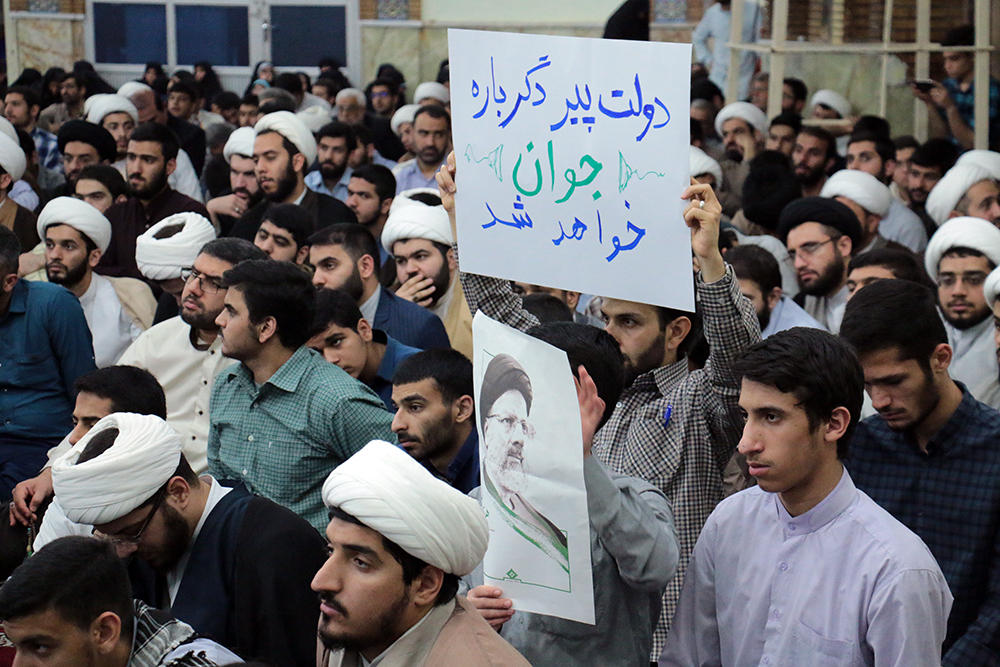 دولت پیر دگرباره
جوان
خواهد شد